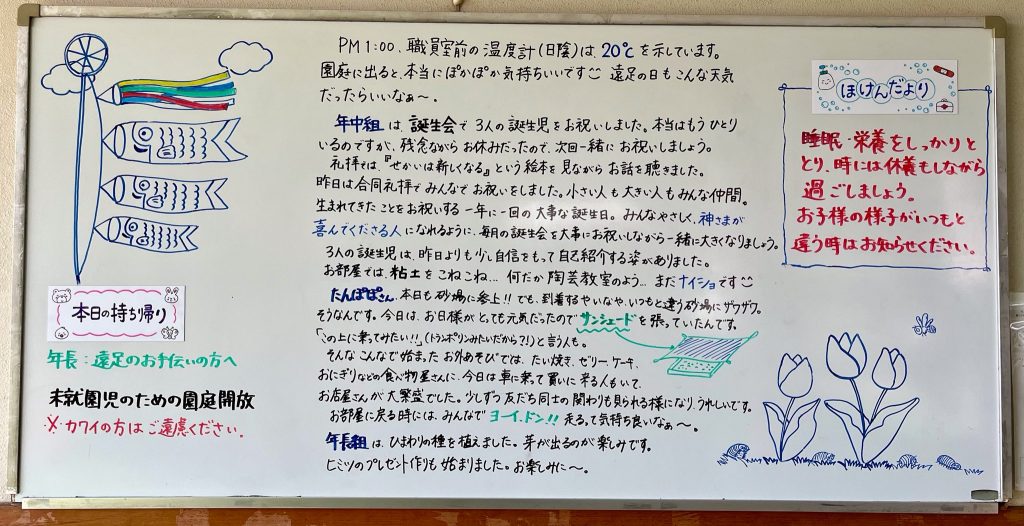 PM1:00、職員室前の温度計(日陰)は、20℃を示しています。
園庭に出ると、本当にぽかぽか気持ちいいです 遠足の日もこんな天気
だったらいいなぁ〜。
年中組は、誕生会で3人の誕生児をお祝いしました。本当はもうひとり
いるのですが、残念ながらお休みだったので、次回一緒にお祝いしましょう。
礼拝では、『せかいは新しくなる』という絵本を見ながらお話を聴きました。
昨日は合同礼拝でみんなでお祝いをしました。小さい人も大きい人もみんな仲間。
生まれてきたことをお祝いする一年に一回の大事な誕生日。みんなやさしく、神さまが
喜んでくださる人になれるように、毎月の誕生会を大事にお祝いしながら一緒に大きくなりましょう。
3人の誕生児は、昨日よりも少し自信をもって自己紹介する姿がありました。
お部屋では、粘土をこねこね…何だか陶芸教室のよう…まだナイショです
たんぽぽさん、本日も砂場に参上!!でも、到着するやいなや、いつもと違う砂場にザワザワ。
そうなんです。今日は、お日様がとっても元気だったのでサンシェードを張っていたんです。
「この上に乗ってみたい!!」(トランポリンみたいだから?!)と言う人も。
そんなこんなで始まったお外あそびでは、たい焼き、ゼリー、ケーキ、
おにぎりなどの食べ物屋さんに、今日は車に乗って買いに来る人もいて、
お店屋さんが大繁盛でした。少しずつ友だち同士の関わりも見られる様になり、うれしいです。
お部屋に戻る時には、みんなでヨーイ、ドン!!走るって気持ち良いなぁ〜。
年長組は、ひまわりの種を植えました。芽が出るのが楽しみです。
ヒミツのプレゼント作りも始まりました。お楽しみに〜。
本日の持ち帰り
年長:遠足のお手伝いの方へ
未就園児のための園庭開放
※カワイの方はご遠慮ください。
ほけんだより
睡眠・栄養をしっかりと
とり、時には休養もしながら
過ごしましょう。
お子様の様子がいつもと
違う時はお知らせください。